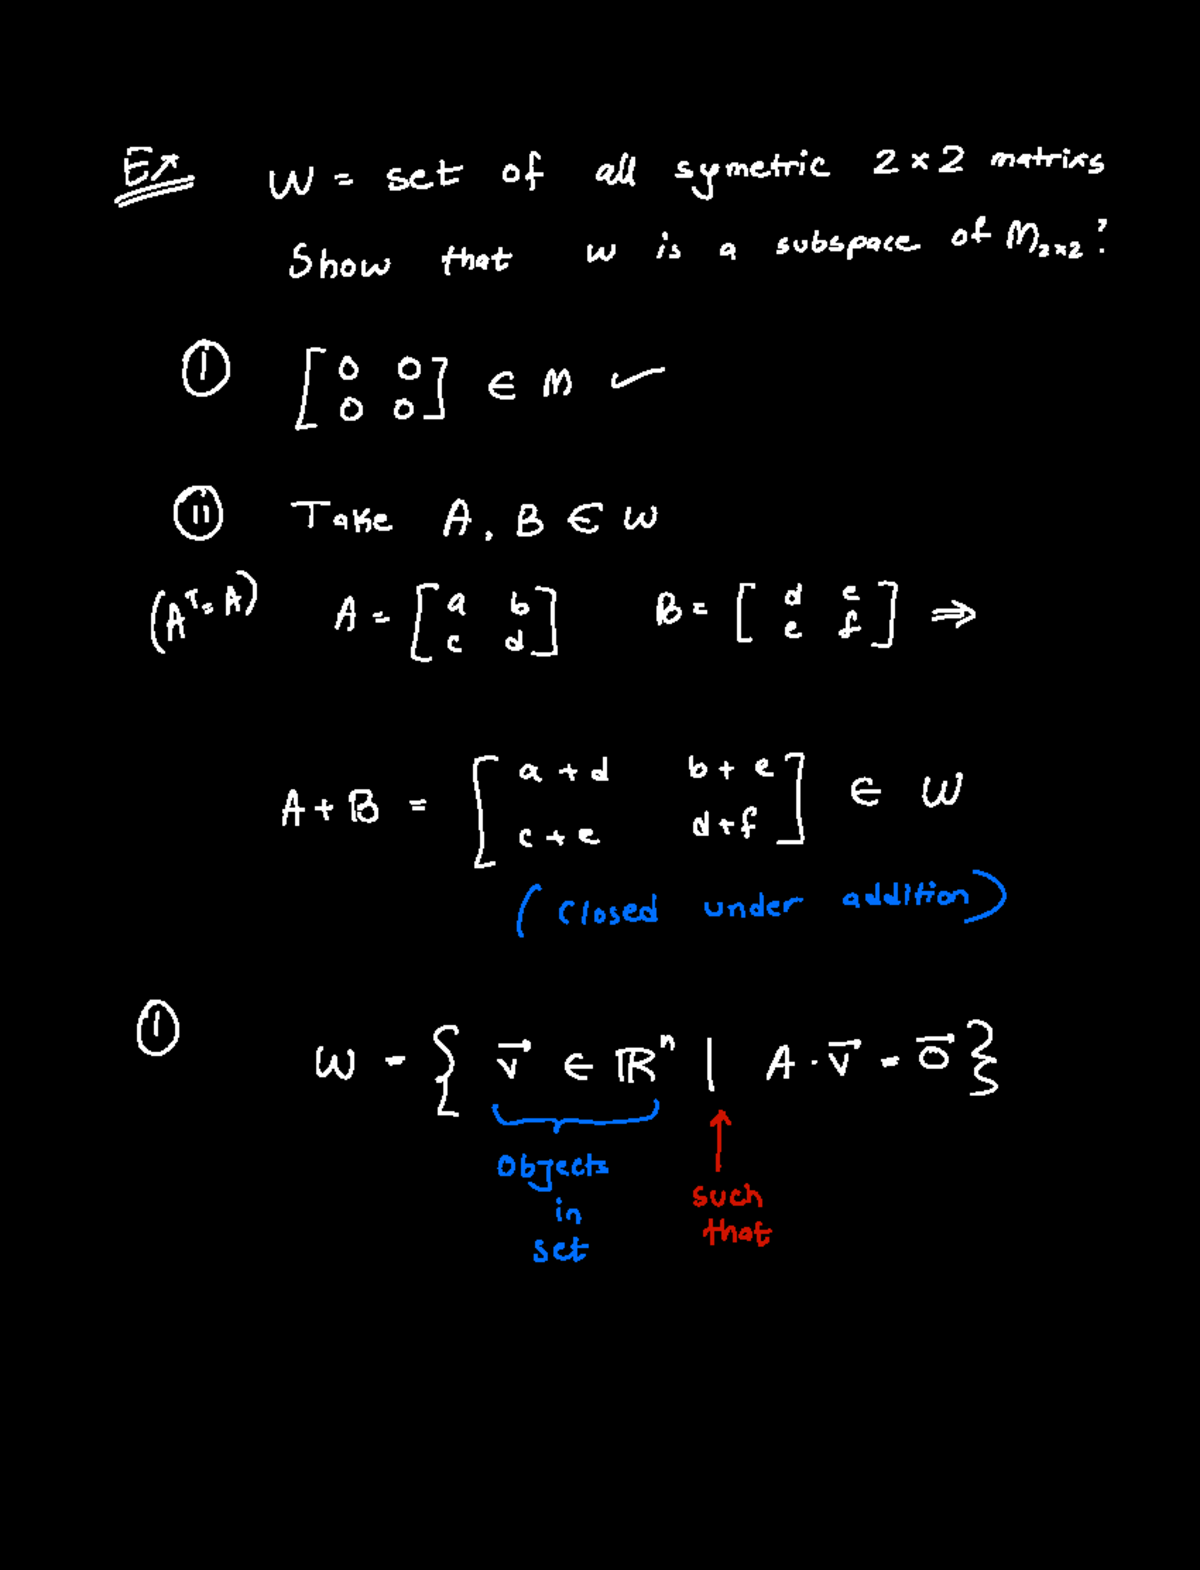 Ex W = set of all symetric 2 × 2 matrixs
Show that W is a subspace of M₂ₓ₂?
(i) [0 0; 0 0] ∈ M ✓
(ii) Take A, B ∈ W
(Aᵀ = A) A = [a b; c d] B = [d e; e f] ⇒
A + B = [a + d b + e; c + e d + f] ∈ W
(Closed under addition)
(1) W = { v⃗ ∈ ℝⁿ | A · v⃗ = 0⃗ }
Objects
in
set
such
that